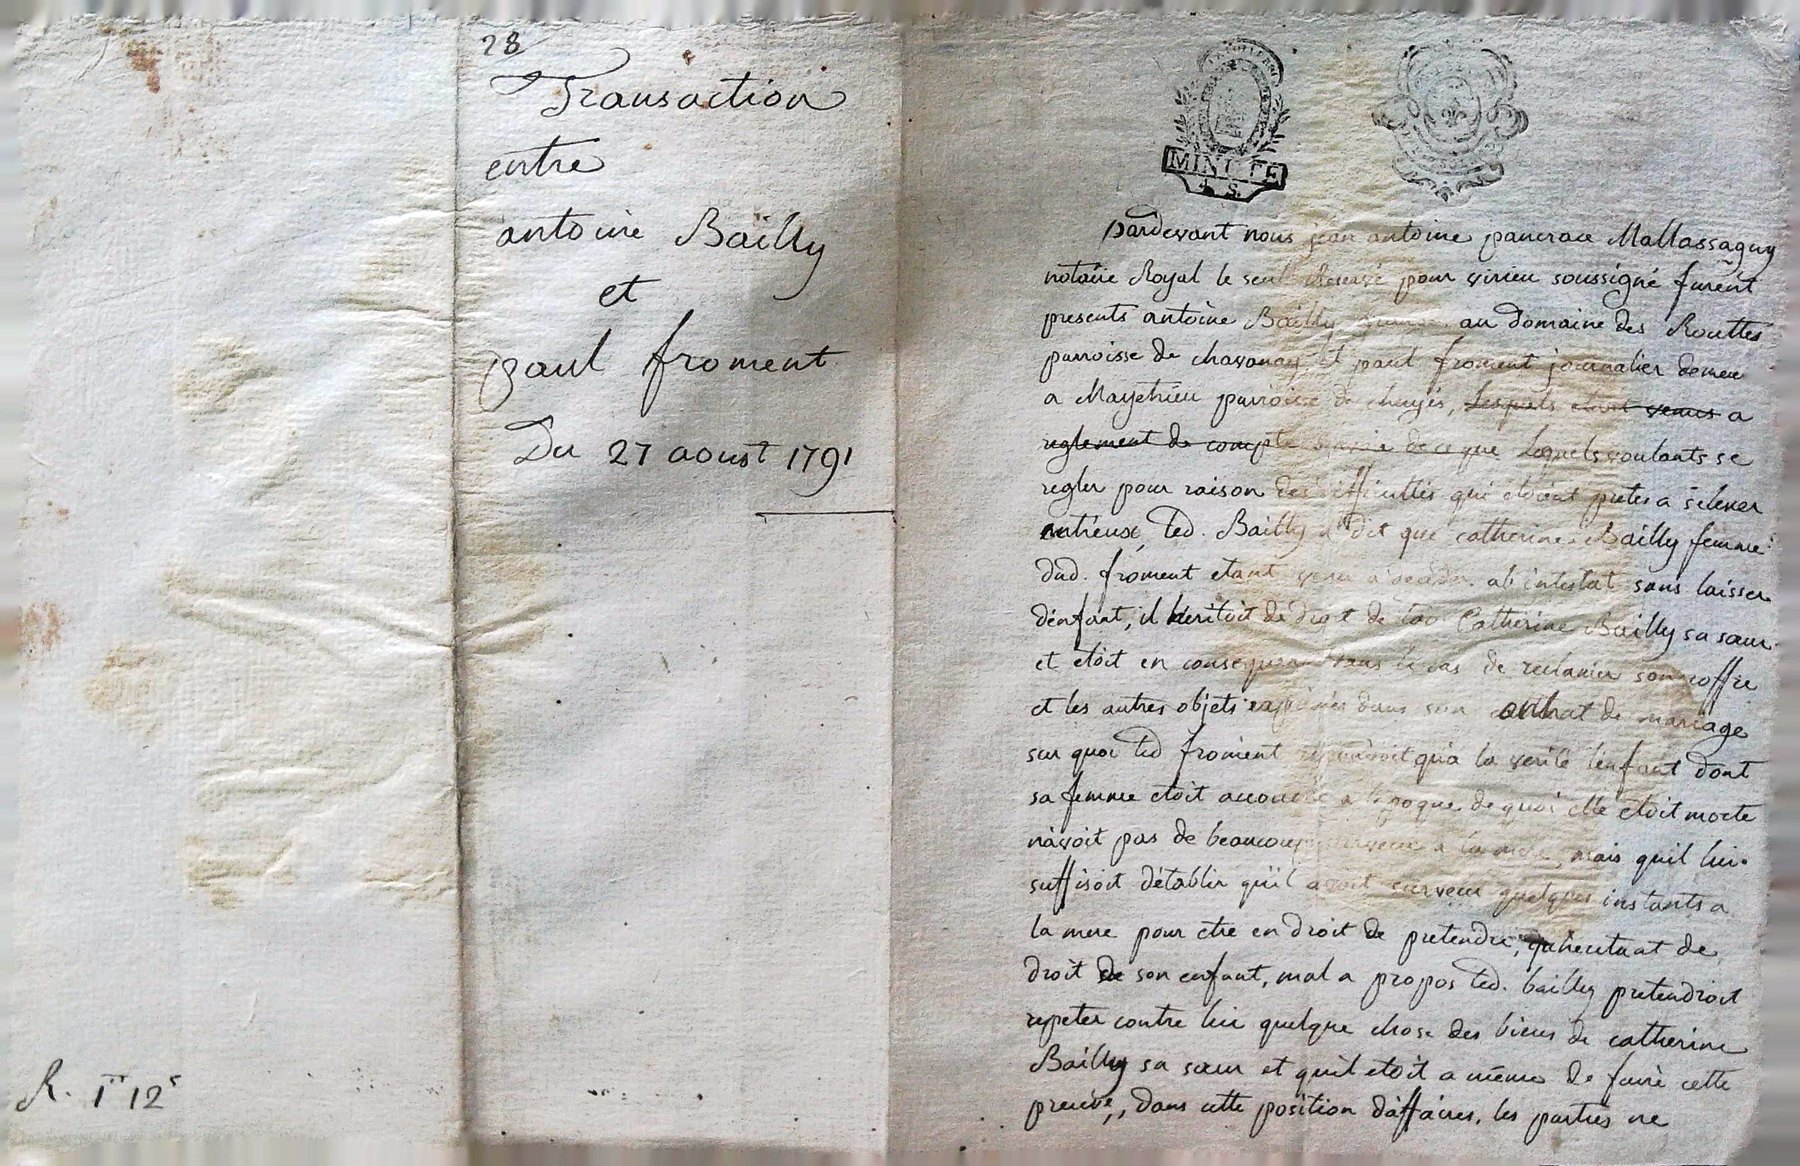 28
Transaction
entre
antoine Bailly
et
paul froment
Du 27 aoust 1791
R. 1 12ˢ
MINUTE
4. S.
pardevant nous jean antoine pancrace Mallassagny
notaire Royal le seul Reservé pour virieu soussigné furent
presents antoine Bailly au domaine des Routtes
parroisse de chavanay, et paul froment journalier demeu
a Mayetrieu parroisse de, Lesquels etant venus a
reglement de compte de ce que Lequels voulants se
regler pour raison des difficultés qui etoient pretes a selever
entreux, led. Bailly a dit que catherine Bailly femme
dud. froment etant venu a deceder ab intestat sans laisser
denfant, il heritoit de droit de lad Catherine Bailly sa sœur
et etoit en consequence dans le cas de reclamer son coffre
et les autres objets exprimés dans son contrat de mariage
sur quoi led froment repondoit qua la verité lenfant dont
sa femme etoit accouchée a lepoque de quoi elle etoit morte
navoit pas de beaucoup survecu a la mere, mais quil lui
suffisoit détablir quil avoit survecu quelques instants a
la mere pour etre en droit de pretendre, quheritant de
droit de son enfant, mal a propos led. bailly pretendroit
repeter contre lui quelque chose des biens de catherine
Bailly sa sœur et quil etoit a meme de faire cette
preuve, dans cette position daffaires, les parties ne